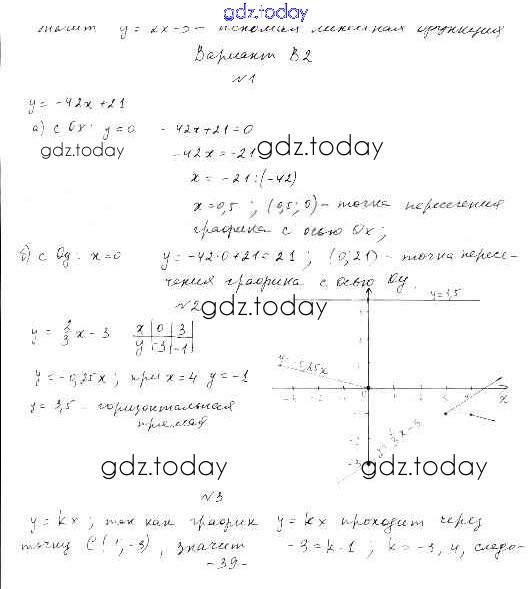 gdz.today
значит y = 2x-3 - искомая линейная функция
Вариант В2
№1
y = -42x + 21
а) с Ох: y = 0 -42x + 21 = 0
gdz.today
-42x = -21
gdz.today
x = -21 : (-42)
x = 0,5 ; (0,5; 0) - точка пересечения
графика с осью Ох;
б) с Оу: x = 0 y = -42·0+21 = 21 ; (0, 21) - точка пересе-
чения графика с осью Оу.
№2
gdz.today
y = 3,5
y = 2/3 x - 3
x | 0 | 3
y | -3 | -1
y = -0,25x
y = -0,25x ; при x = 4 y = -1
y = 3,5 - горизонтальная
прямая
x
y = 2/3 x - 3
-3
gdz.today
gdz.today
№3
y = kx ; так как график y = kx проходит через
точку C(1; -3), значит -3 = k·1 ; k = -3, и, следо-
-39-